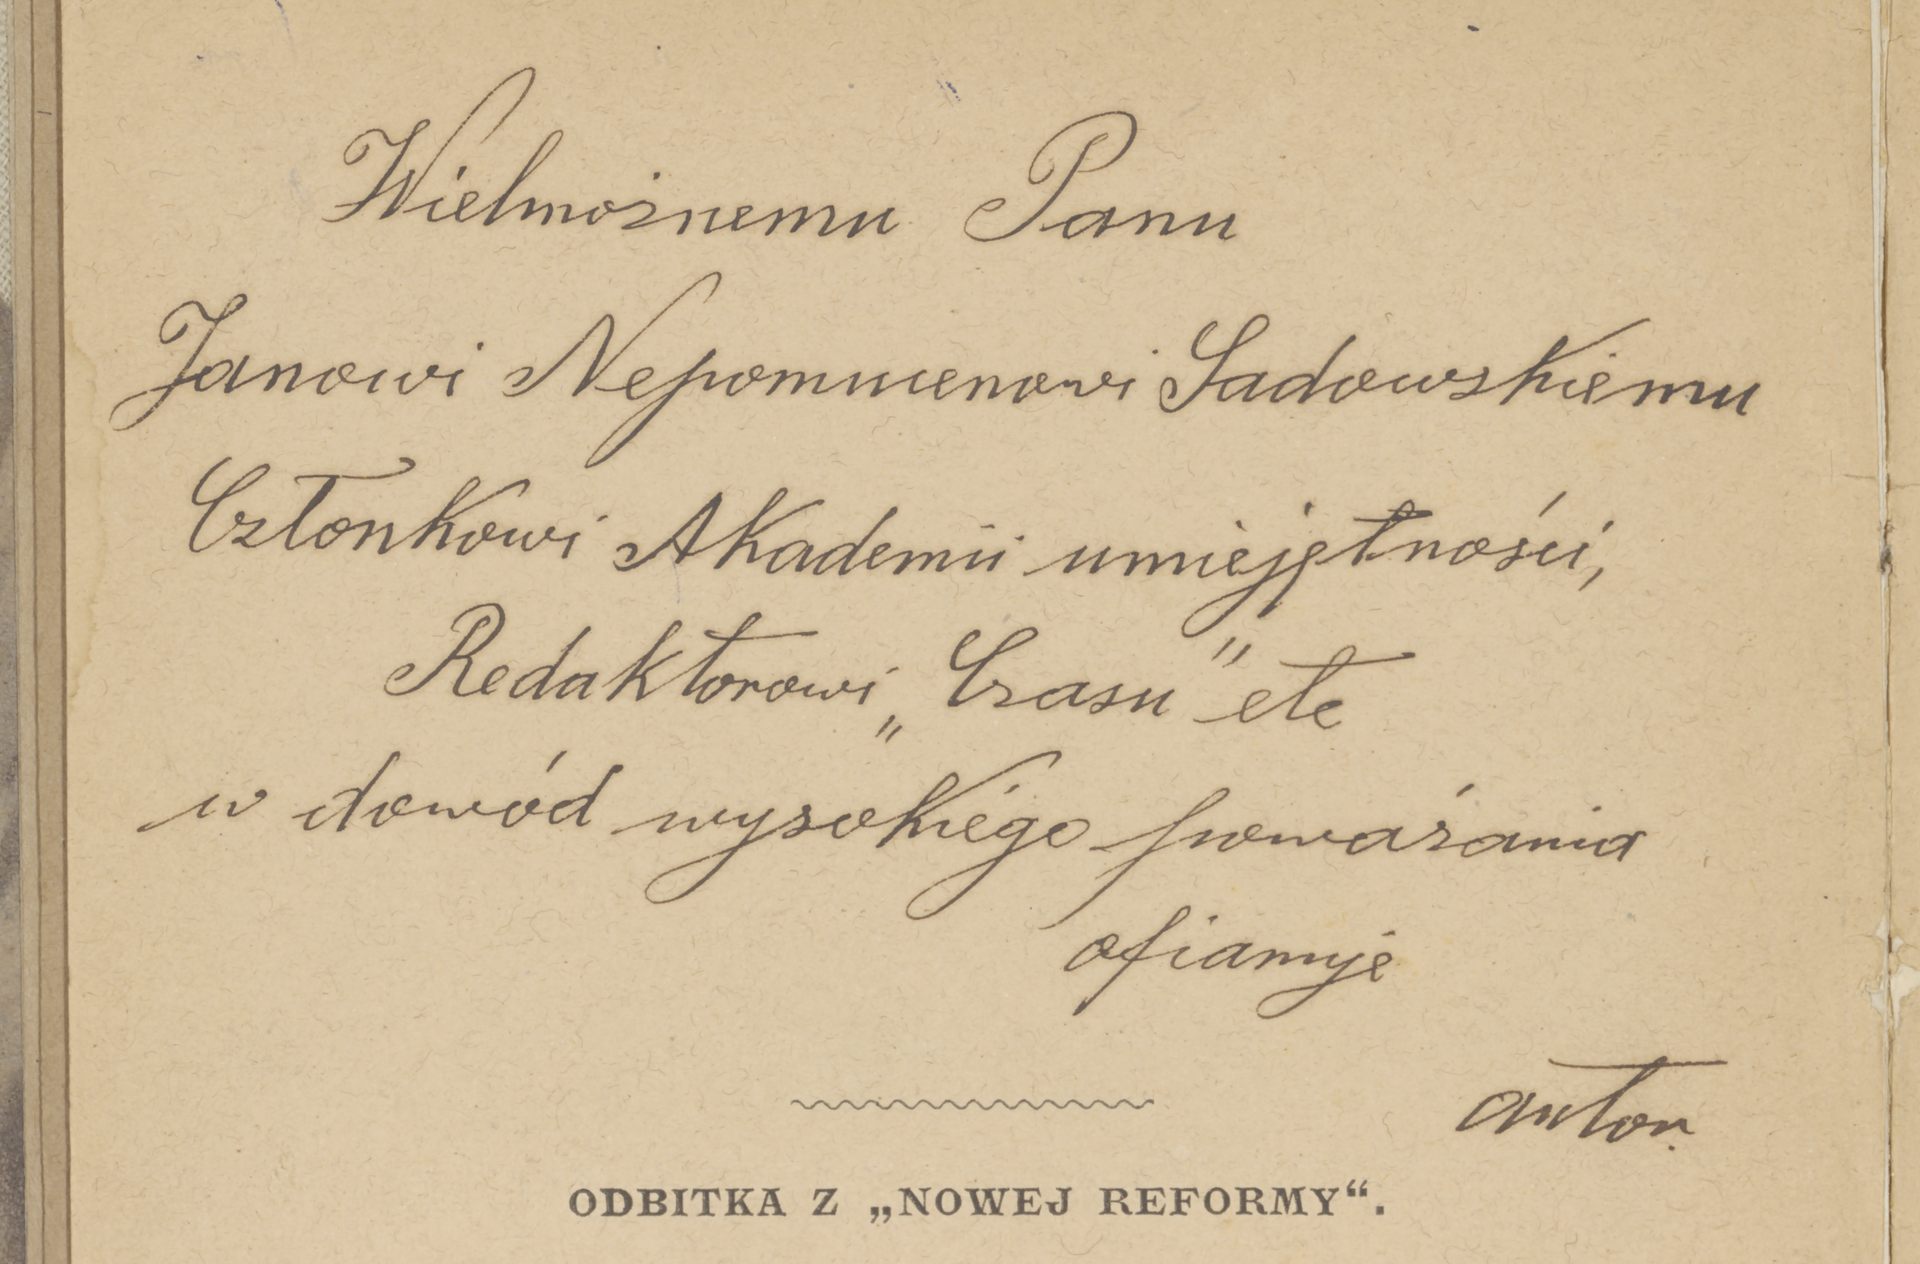 Wielmożnemu Panu
Janowi Nepomucenowi Sadowskiemu
Członkowi Akademii umiejętności,
Redaktorowi „Czasu" etc
w dowód wysokiégo poważania
ofiaruje
autor.
ODBITKA Z „NOWEJ REFORMY“.